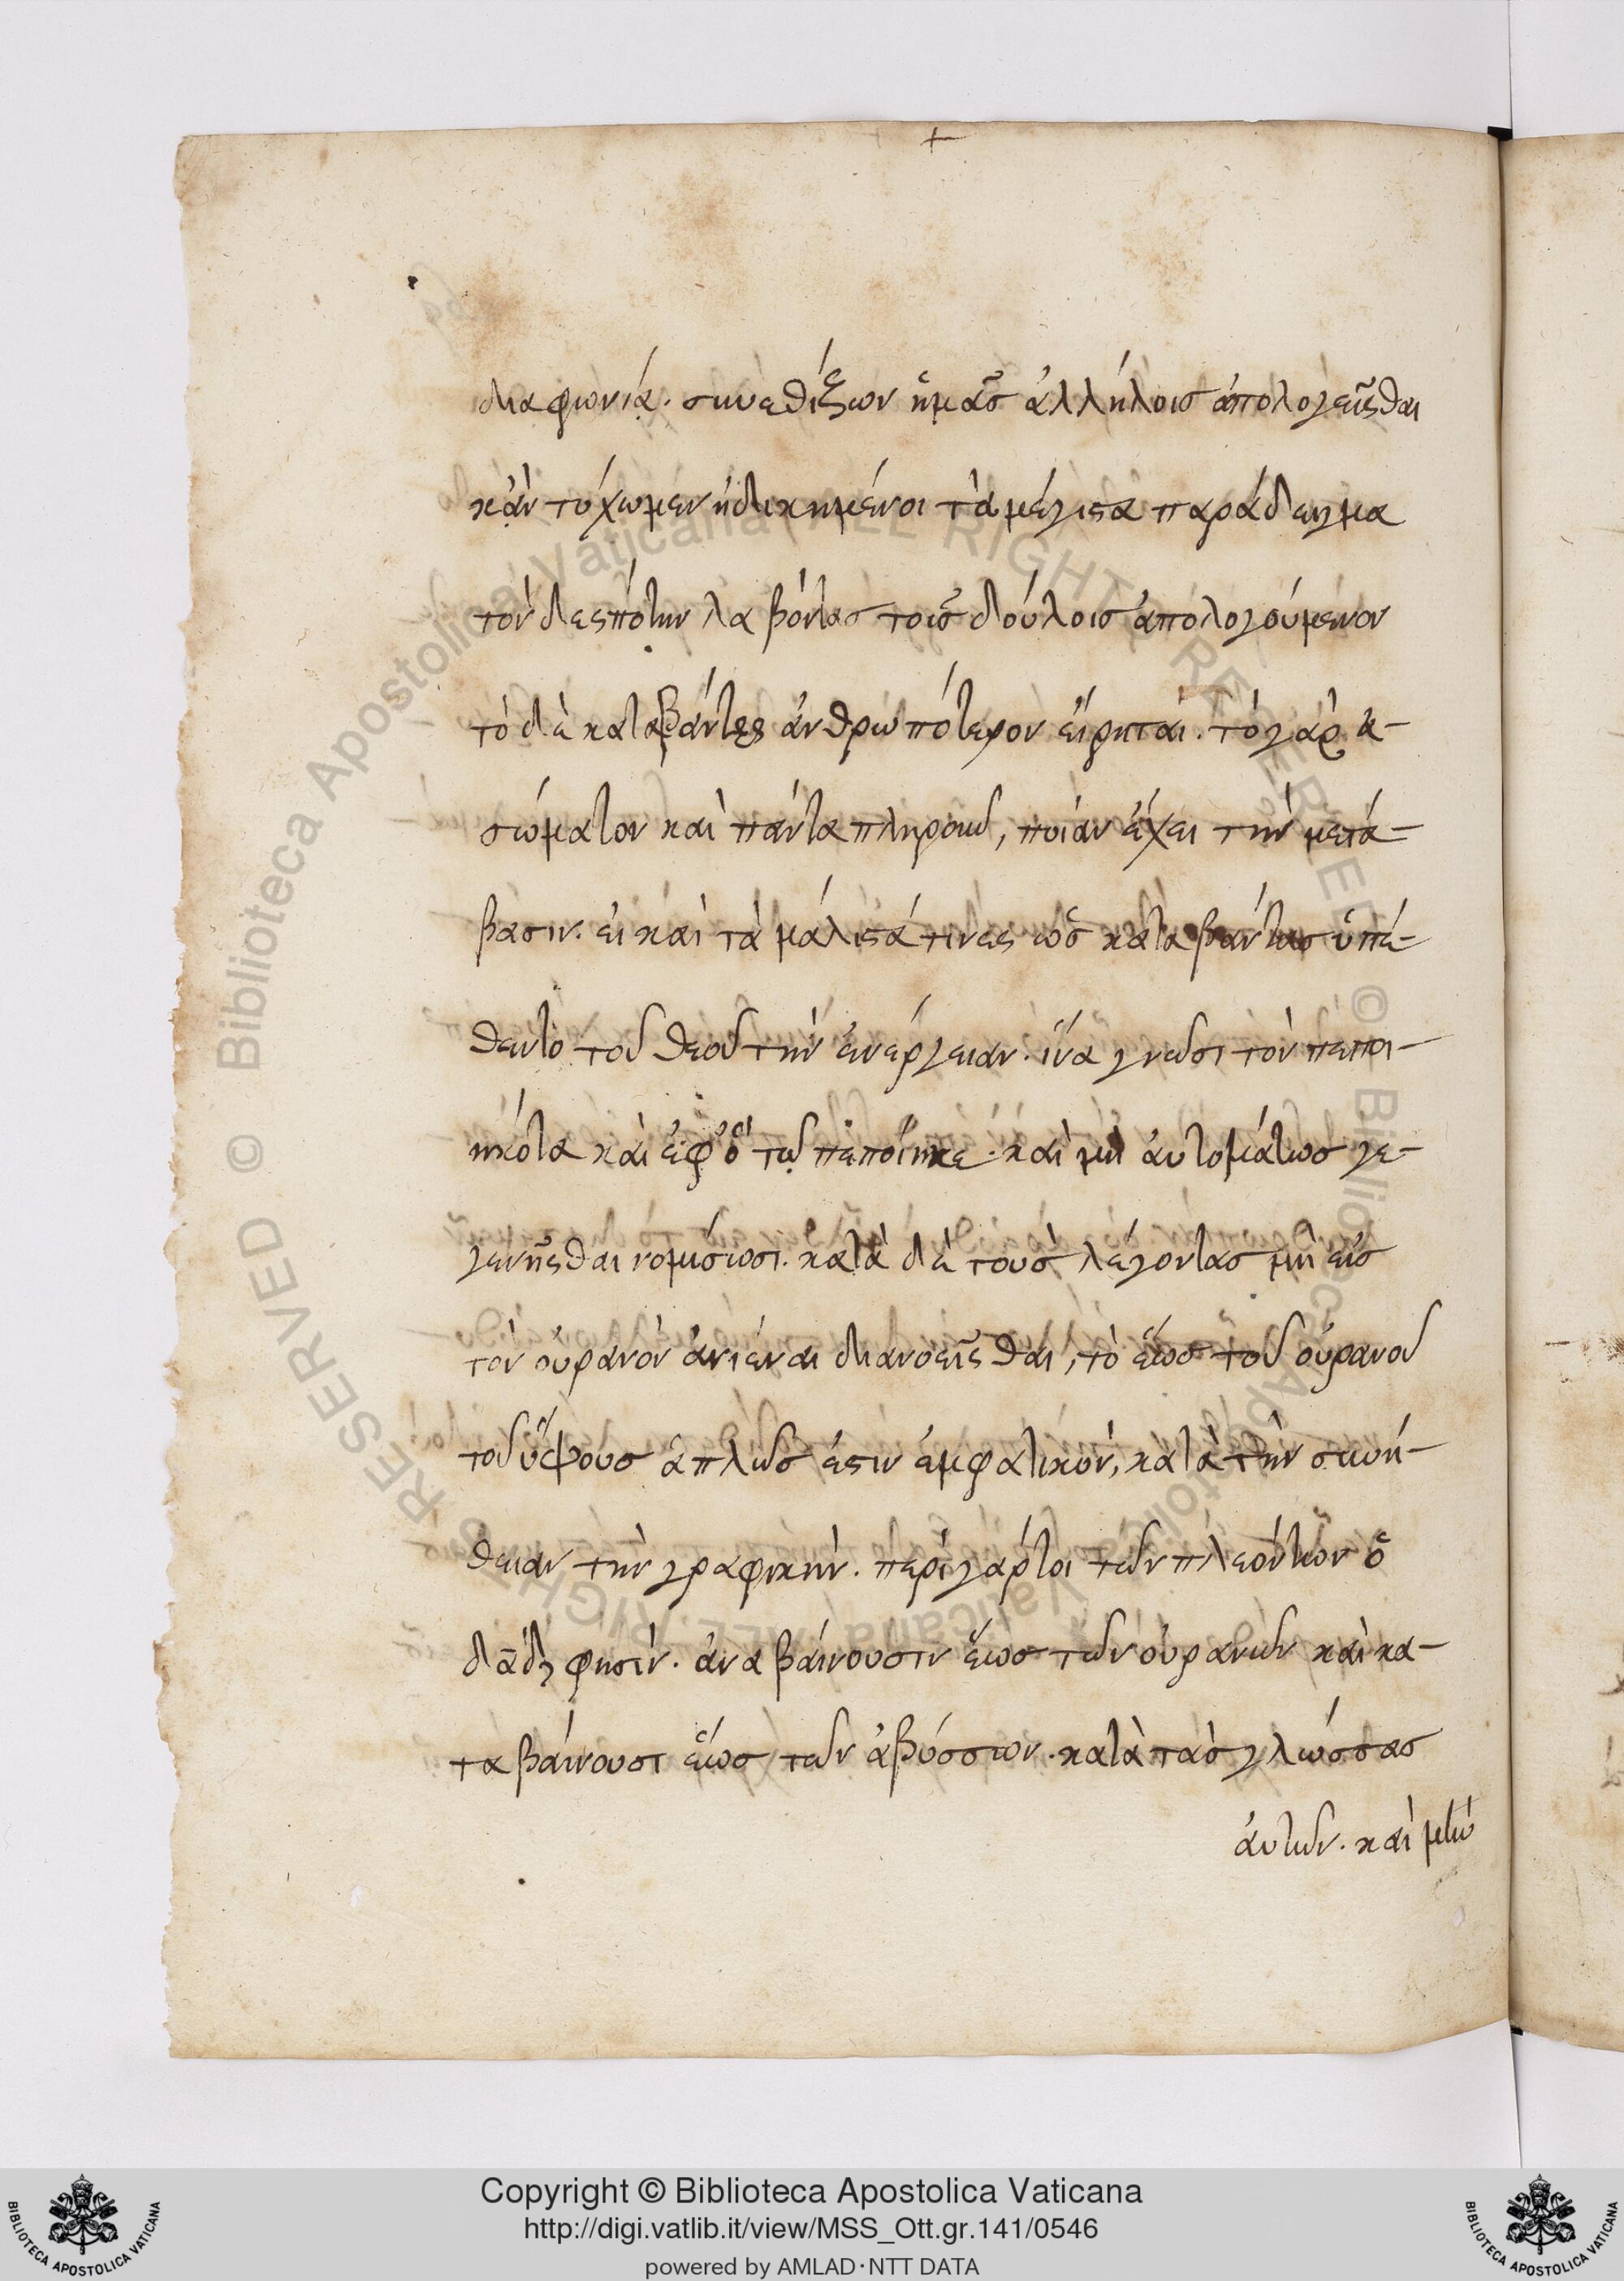 διαφωνία. συνεθίζων ἡμᾶς ἀλλήλοις ἀπολογεῖσθαι
κἂν τύχωμεν ἠδικημένοι τὰ μέγιστα παράδειγμα
τὸν δεσπότην λαβόντας τοῖς δούλοις ἀπολογούμενον
τὸ δὲ καταβάντες ἀνθρωπότερον εἴρηται. τὸ γὰρ ἀ-
σώματον καὶ πάντα πληροῦν, ποίαν ἔχει τὴν μετά-
βασιν. εἰ καὶ τὰ μάλιστά τινες ὡς καταβάντας ὑπέ-
θεντο τοῦ θεοῦ τὴν ἐνέργειαν. ἵνα γνῶσι τὸν πεποι-
ηκότα καὶ ἐφ' ὅτῳ πεποίηκε. καὶ μὴ αὐτομάτως γε-
γενῆσθαι νομίσωσι. κατὰ δὲ τοὺς λέγοντας μὴ εἰς
τὸν οὐρανὸν ἀνιέναι διανοεῖσθαι, τὸ ἕως τοῦ οὐρανοῦ
τοῦ ὕψους ἁπλῶς ἐστιν ἐμφατικόν, κατὰ τὴν συνή-
θειαν τὴν γραφικήν. περὶ γάρτοι τῶν πλεόντων ὁ
δᾱδ φησίν. ἀναβαίνουσιν ἕως τῶν οὐρανῶν καὶ κα-
ταβαίνουσι ἕως τῶν ἀβύσσων. κατὰ τὰς γλώσσας
αὐτῶν. καὶ
Copyright © Biblioteca Apostolica Vaticana
http://digi.vatlib.it/view/MSS_Ott.gr.141/0546
powered by AMLAD・NTT DATA
BIBLIOTECA APOSTOLICA VATICANA
BIBLIOTECA APOSTOLICA VATICANA
© Biblioteca Apostolica Vaticana ALL RIGHTS RESERVED
© Biblioteca Apostolica Vaticana ALL RIGHTS RESERVED